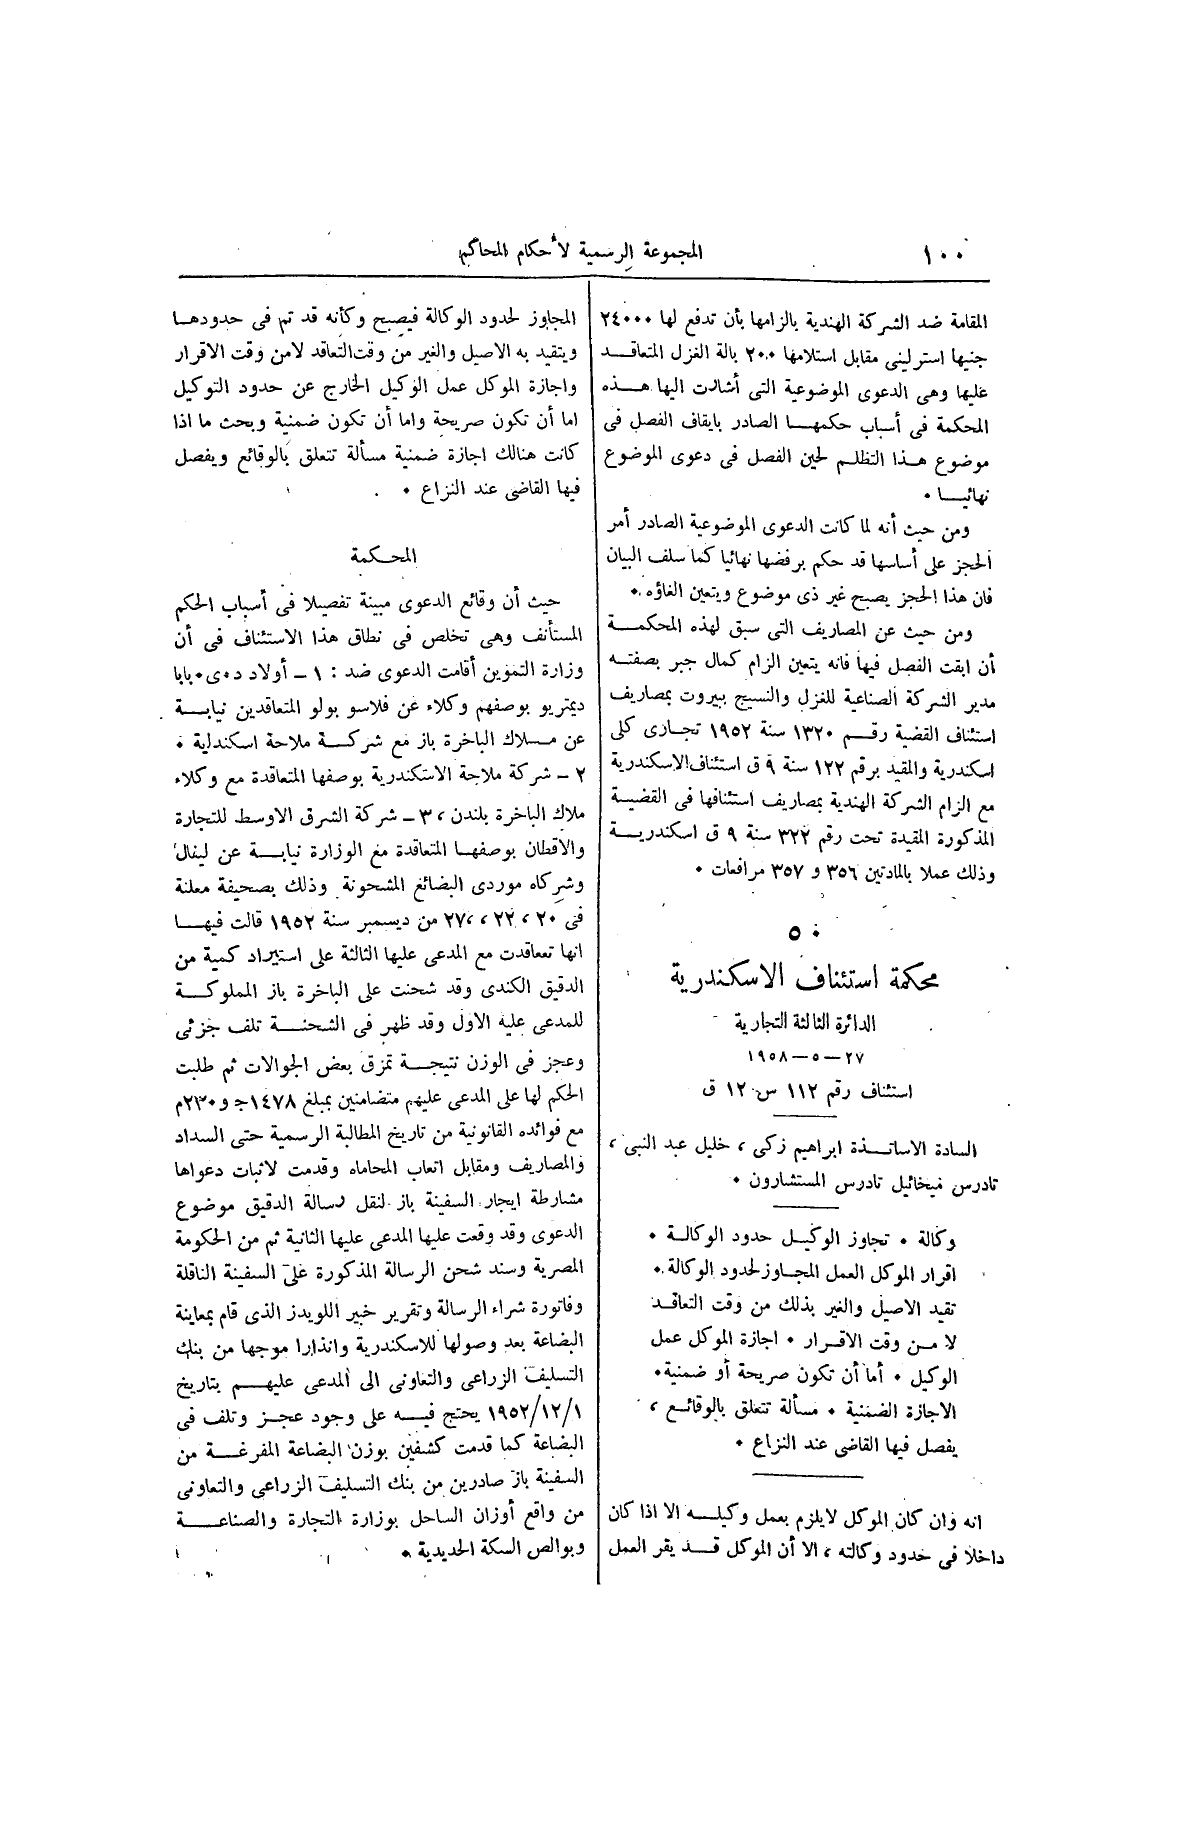 ١٠٠
المجموعة الرسمية لأحكام المحاكم
المقامة ضد الشركة الهندية بالزامها بأن تدفع لها ٢٤٠٠٠
جنيها استرلينى مقابل استلامها ٢٠٠ بالة الغزل المتعاقد
عليها وهى الدعوى الموضوعية التى أشارت اليها هذه
المحكمة فى أسباب حكمها الصادر بايقاف الفصل فى
موضوع هذا التظلم لحين الفصل فى دعوى الموضوع
نهائيا ٠
ومن حيث أنه لما كانت الدعوى الموضوعية الصادر أمر
الحجز على أساسها قد حكم برفضها نهائيا كما سلف البيان
فان هذا الحجز يصبح غير ذى موضوع ويتعين الغاؤه ٠
ومن حيث عن المصاريف التى سبق لهذه المحكمة
أن ابقت الفصل فيها فانه يتعين الزام كمال جبر بصفته
مدير الشركة الصناعية للغزل والنسيج ببيروت بمصاريف
استئناف القضية رقم ١٣٢٠ سنة ١٩٥٢ تجارى كلى
اسكندرية والمقيد برقم ١٢٢ سنة ٩ ق استئناف الاسكندرية
مع الزام الشركة الهندية بمصاريف استئنافها فى القضية
المذكورة المقيدة تحت رقم ٣٢٢ سنة ٩ ق اسكندرية
وذلك عملا بالمادتين ٣٥٦ و ٣٥٧ مرافعات ٠
٥٠
محكمة استئناف الاسكندرية
الدائرة الثالثة التجارية
٢٧ – ٥ – ١٩٥٨
استئناف رقم ١١٢ س ١٢ ق
السادة الاساتذة ابراهيم زكى ، خليل عبد النبى ،
تادرس ميخائيل تادرس المستشارون ٠
وكالة ٠ تجاوز الوكيل حدود الوكالة ٠
اقرار الموكل العمل المجاوز لحدود الوكالة ٠
تقيد الاصيل والغير بذلك من وقت التعاقد
لا من وقت الاقرار ٠ اجازة الموكل عمل
الوكيل ٠ أما أن تكون صريحة أو ضمنية ٠
الاجازة الضمنية ٠ مسألة تتعلق بالوقائع ،
يفصل فيها القاضى عند النزاع ٠
انه وان كان الموكل لايلزم بعمل وكيله الا اذا كان
داخلا فى حدود وكالته ، الا أن الموكل قد يقر العمل
المجاوز لحدود الوكالة فيصبح وكأنه قد تم فى حدودها
ويتقيد به الاصيل والغير من وقت التعاقد لامن وقت الاقرار
واجازة الموكل عمل الوكيل الخارج عن حدود التوكيل
اما أن تكون صريحة واما أن تكون ضمنية وبحث ما اذا
كانت هنالك اجازة ضمنية مسألة تتعلق بالوقائع ويفصل
فيها القاضى عند النزاع ٠
المحكمة
حيث أن وقائع الدعوى مبينة تفصيلا فى أسباب الحكم
المستأنف وهى تخلص فى نطاق هذا الاستئناف فى أن
وزارة التموين أقامت الدعوى ضد : ١ – أولاد د٠ى٠بابا
ديمتريو بوصفهم وكلاء عن فلاسو بولو المتعاقدين نيابة
عن ملاك الباخرة باز مع شركة ملاحة اسكندلية ٠
٢ – شركة ملاجة الاسكندرية بوصفها المتعاقدة مع وكلاء
ملاك الباخرة بلندن ، ٣ – شركة الشرق الاوسط للتجارة
والاقطان بوصفها المتعاقدة مع الوزارة نيابة عن ليفال
وشركاه موردى البضائع المشحونة وذلك بصحيفة معلنة
فى ٢٠ ، ٢٢ ، ٢٧ من ديسمبر سنة ١٩٥٢ قالت فيها
انها تعاقدت مع المدعى عليها الثالثة على استيراد كمية من
الدقيق الكندى وقد شحنت على الباخرة باز المملوكة
للمدعى عليه الاول وقد ظهر فى الشحنة تلف جزئى
وعجز فى الوزن نتيجة تمزق بعض الجوالات ثم طلبت
الحكم لها على المدعى عليهم متضامنين بمبلغ ١٤٧٨ج و ٢٣٠م
مع فوائده القانونية من تاريخ المطالبة الرسمية حتى السداد
والمصاريف ومقابل اتعاب المحاماه وقدمت لاثبات دعواها
مشارطة ايجار السفينة باز لنقل رسالة الدقيق موضوع
الدعوى وقد وقعت عليها المدعى عليها الثانية ثم من الحكومة
المصرية وسند شحن الرسالة المذكورة على السفينة الناقلة
وفاتورة شراء الرسالة وتقرير خبير اللويدز الذى قام بمعاينة
البضاعة بعد وصولها للاسكندرية وانذارا موجها من بنك
التسليف الزراعى والتعاونى الى المدعى عليهم بتاريخ
١/ ١٢/ ١٩٥٢ يحتج فيه على وجود عجز وتلف فى
البضاعة كما قدمت كشفين بوزن البضاعة المفرغة من
السفينة باز صادرين من بنك التسليف الزراعى والتعاونى
من واقع أوزان الساحل بوزارة التجارة والصناعة
وبوالص السكة الحديدية ٠